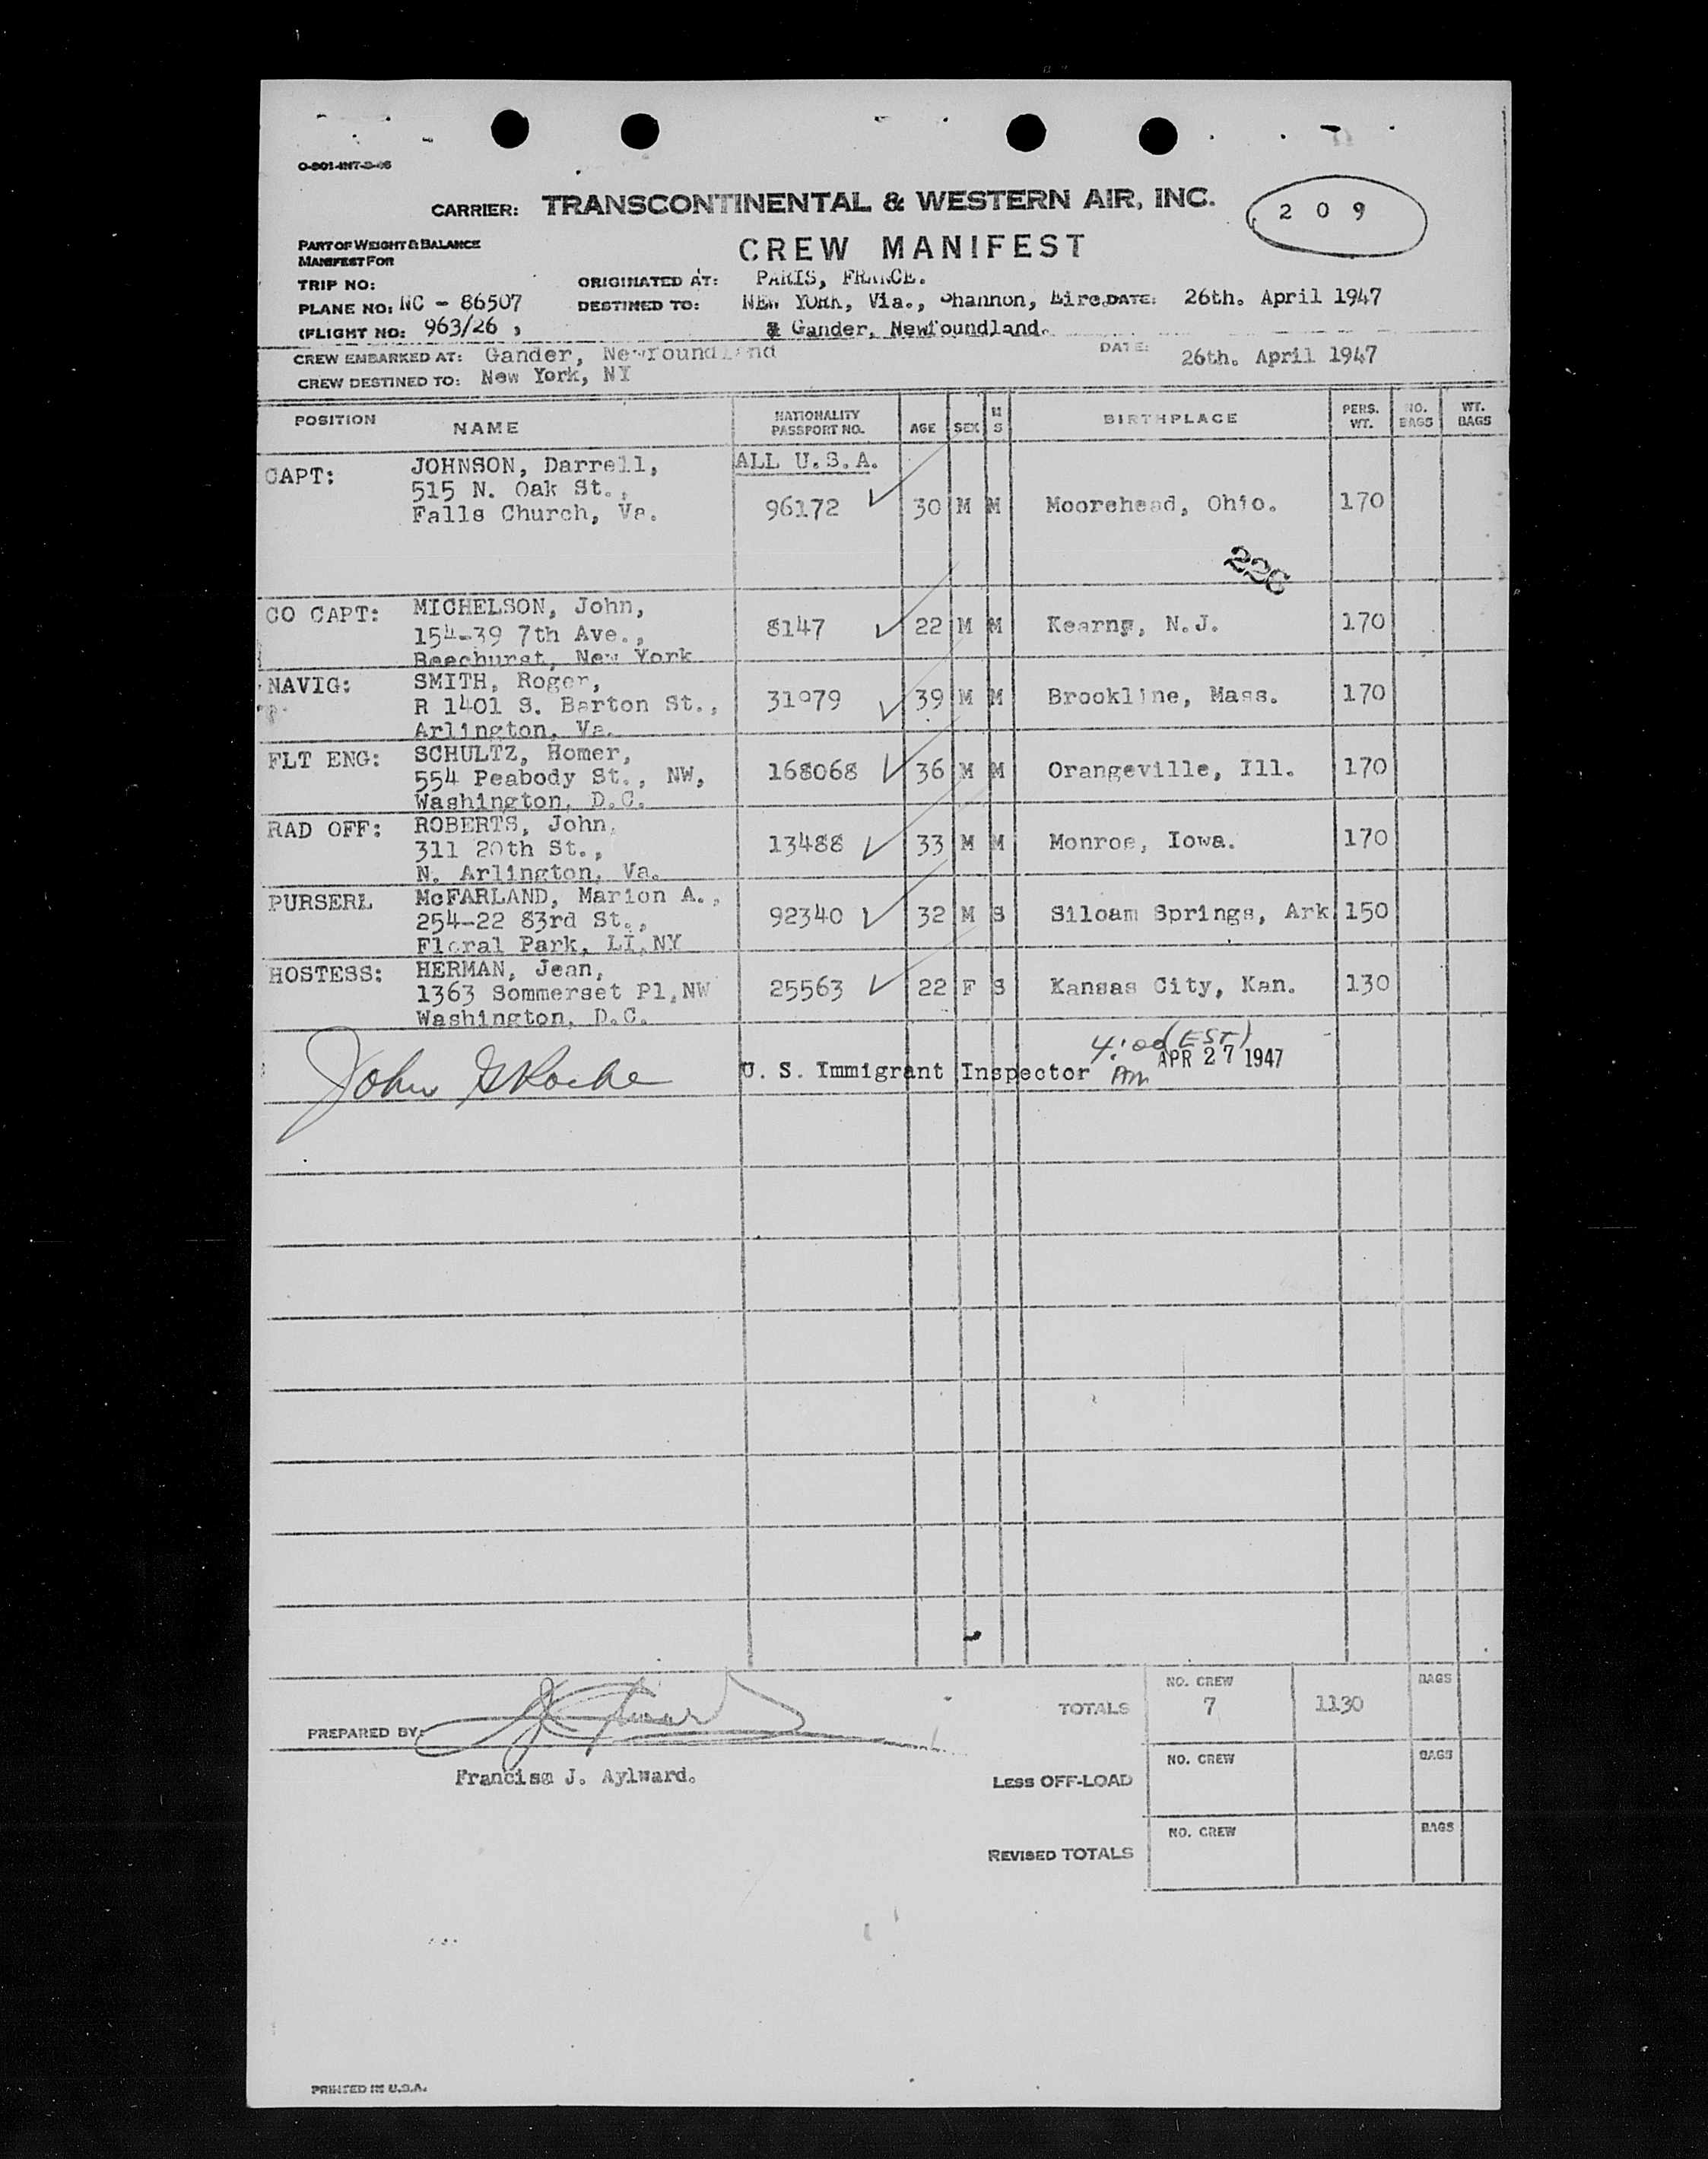 O-801-INT-3-46
CARRIER: TRANSCONTINENTAL & WESTERN AIR, INC.
2 0 9
PART OF WEIGHT & BALANCE
MANIFEST FOR
CREW MANIFEST
TRIP NO: ORIGINATED AT: PARIS, FRANCE.
PLANE NO: NC - 86507 DESTINED TO: NEW YORK, Via., Shannon, Eire. DATE: 26th. April 1947
(FLIGHT NO: 963/26 , & Gander, Newfoundland.
CREW EMBARKED AT: Gander, Newfoundland DATE: 26th. April 1947
CREW DESTINED TO: New York, NY
POSITION NAME NATIONALITY PASSPORT NO. AGE SEX M S BIRTHPLACE PERS. WT. NO. BAGS WT. BAGS
ALL U.S.A.
CAPT: JOHNSON, Darrell,
515 N. Oak St.,
Falls Church, Va. 96172 30 M M Moorehead, Ohio. 170
226
CO CAPT: MICHELSON, John,
154-39 7th Ave., 8147 22 M M Kearny, N.J. 170
Beechurst, New York
NAVIG: SMITH, Roger,
R 1401 S. Barton St., 31979 39 M M Brookline, Mass. 170
Arlington, Va.
FLT ENG: SCHULTZ, Homer,
554 Peabody St., NW, 168068 36 M M Orangeville, Ill. 170
Washington, D.C.
RAD OFF: ROBERTS, John,
311 20th St., 13488 33 M M Monroe, Iowa. 170
N. Arlington, Va.
PURSERL McFARLAND, Marion A.,
254-22 83rd St., 92340 32 M S Siloam Springs, Ark 150
Floral Park, LI,NY
HOSTESS: HERMAN, Jean,
1363 Sommerset Pl,NW 25563 22 F S Kansas City, Kan. 130
Washington, D.C.
John G Roche U. S. Immigrant Inspector 4:00 (EST) AM APR 27 1947
TOTALS NO. CREW 7 1130 BAGS
PREPARED BY:
Francise J. Aylward.
LESS OFF-LOAD NO. CREW BAGS
REVISED TOTALS NO. CREW BAGS
PRINTED IN U.S.A.